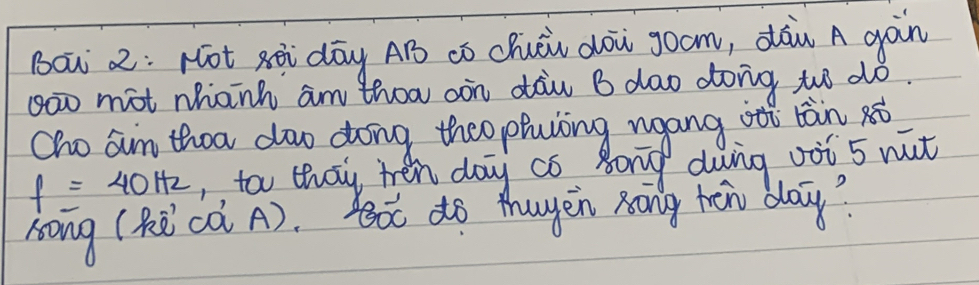 Bài 2: Một sợi dây AB có chiều dài 90cm, đầu A gắn
vào một nhánh âm thoa còn đầu B dao động tự do.
Cho âm thoa dao động theo phương ngang với tần số
f = 40Hz, ta thấy trên dây có sóng dừng với 5 nút
sóng (kể cả A). Tốc độ truyền sóng trên dây?